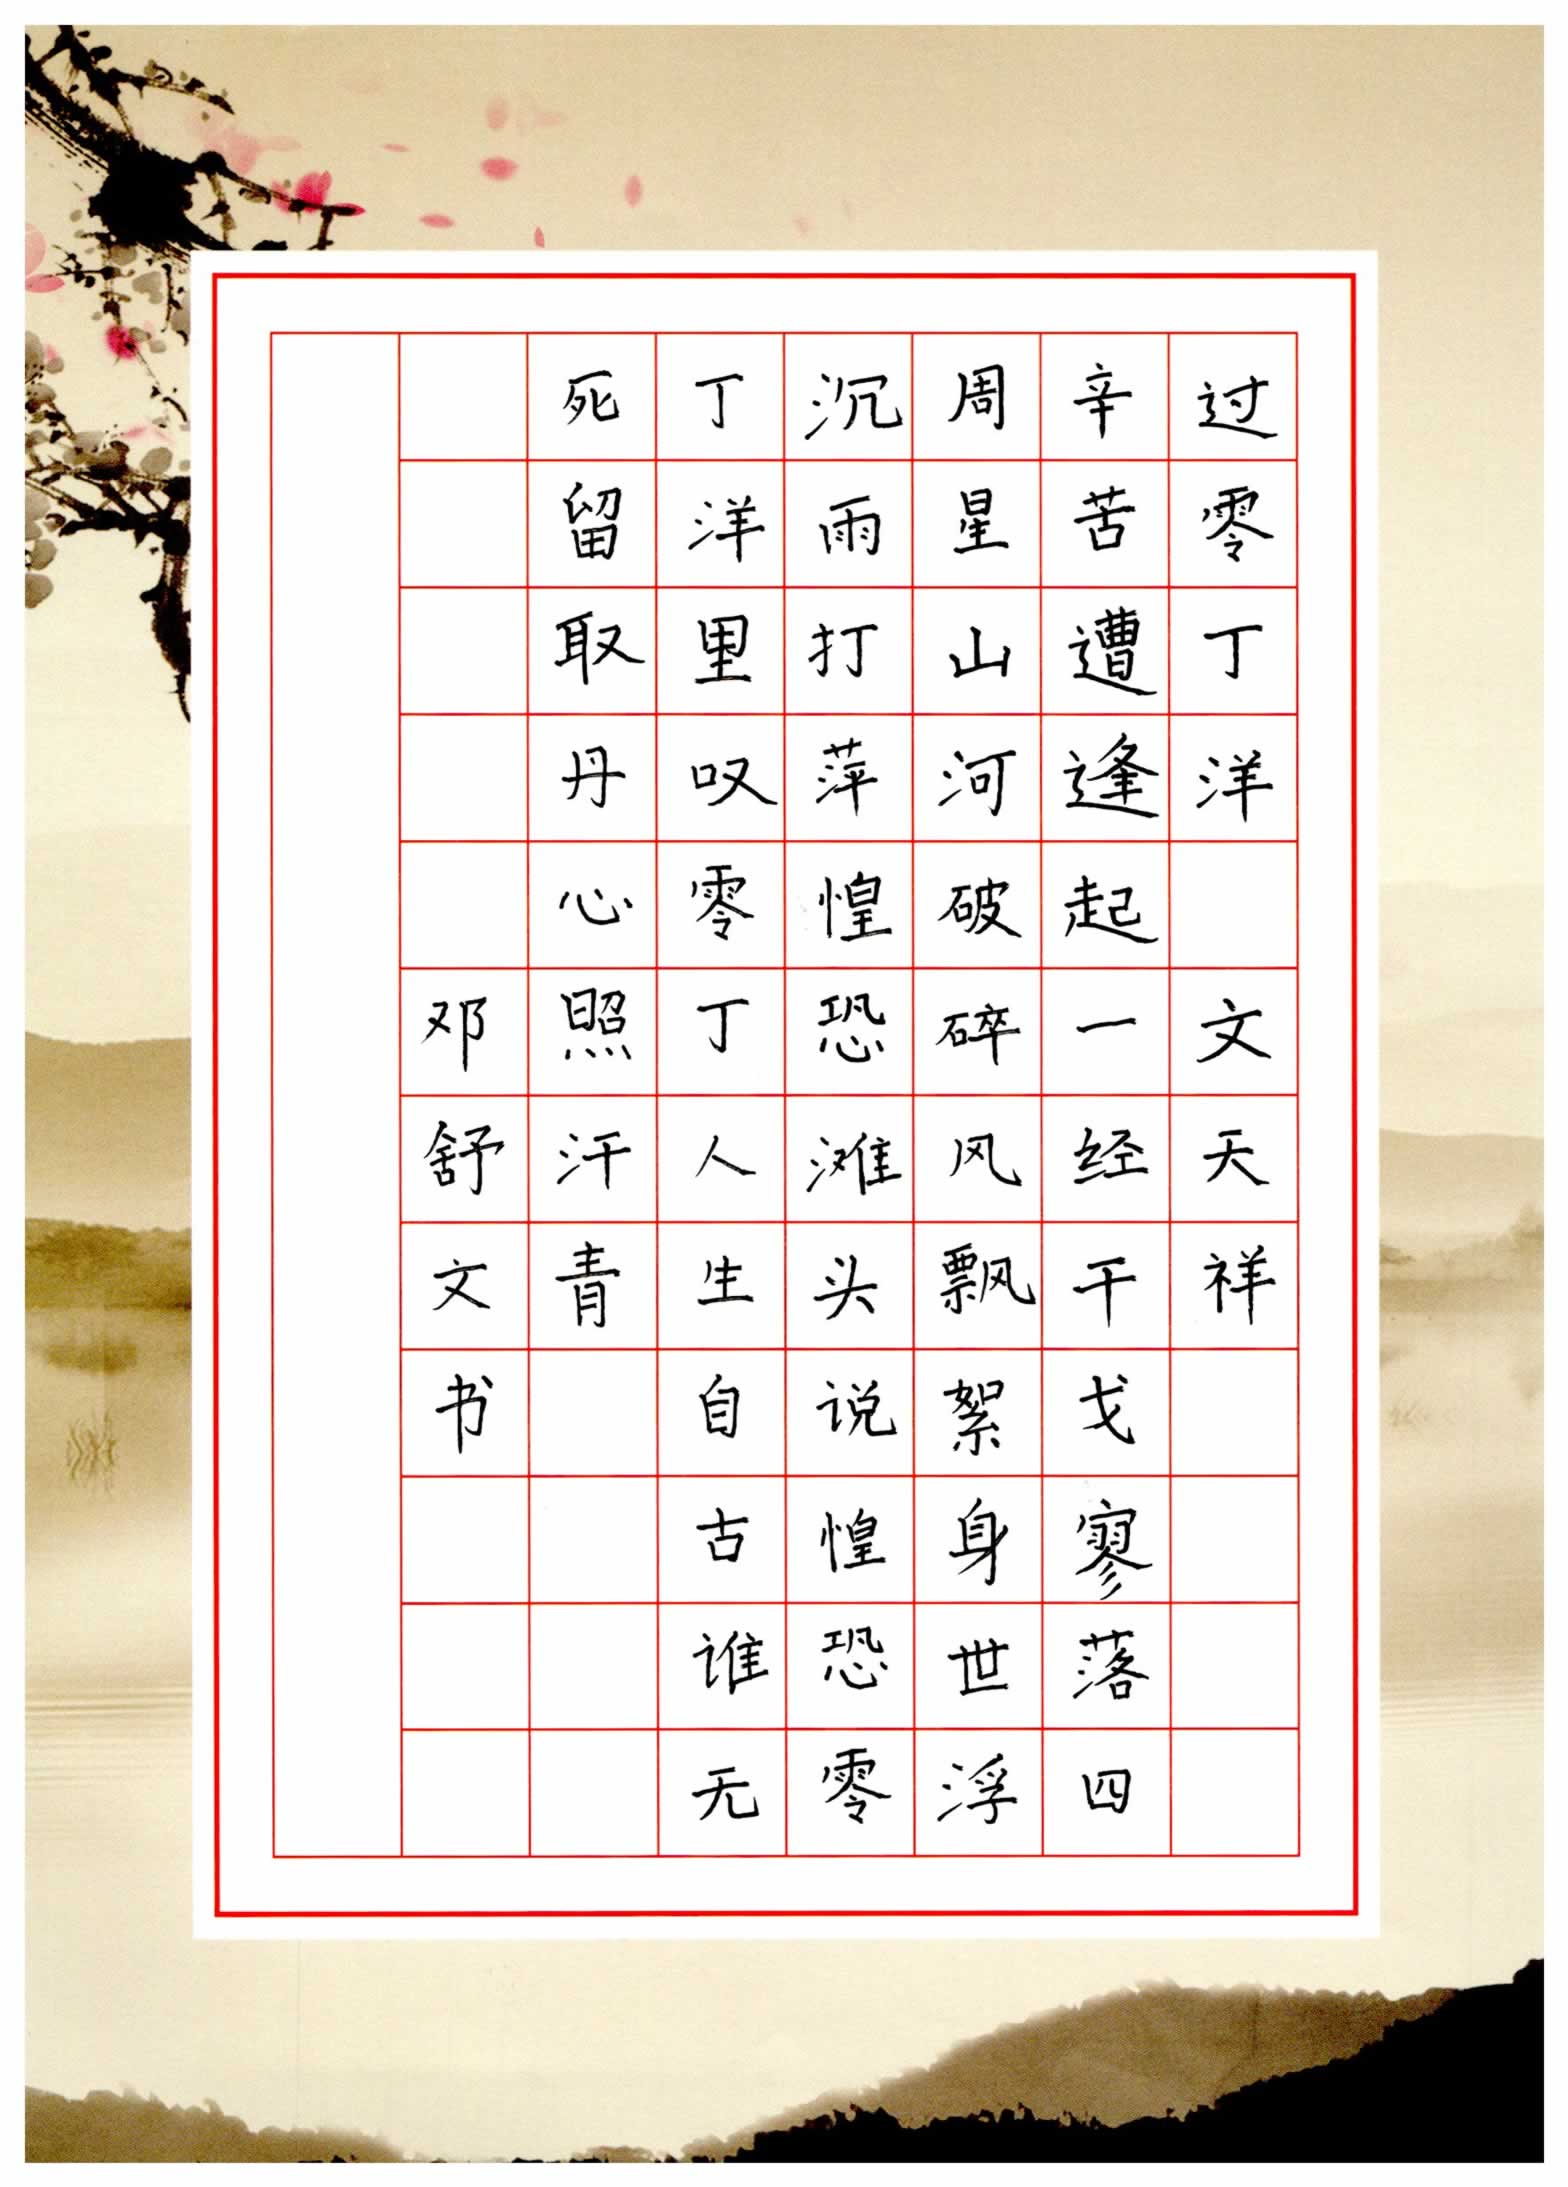 过零丁洋 文天祥
辛苦遭逢起一经干戈寥落四
周星山河破碎风飘絮身世浮
沉雨打萍惶恐滩头说惶恐零
丁洋里叹零丁人生自古谁无
死留取丹心照汗青
邓舒文书